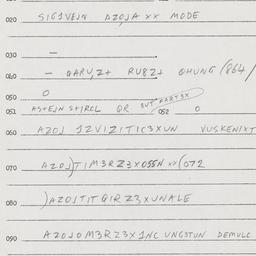 020 SIG1VEJN AZOJA XX MODE
030 —
040 — QARV,Z+ RUBZ+ QHUNG (864/
050 O
051 AS+EJN S+IRCL QR OUT PART3X 052 O
060 AZOJ 1ZVIZITIC3XUN VUSKENIXT
070 AZOJ)TIM3RZ3XOSSN XX(072
080 )AZOJTITGIRZ3XUNALE
090 AZOJOM3RZ3X1NC UNGSTUN DEMULC